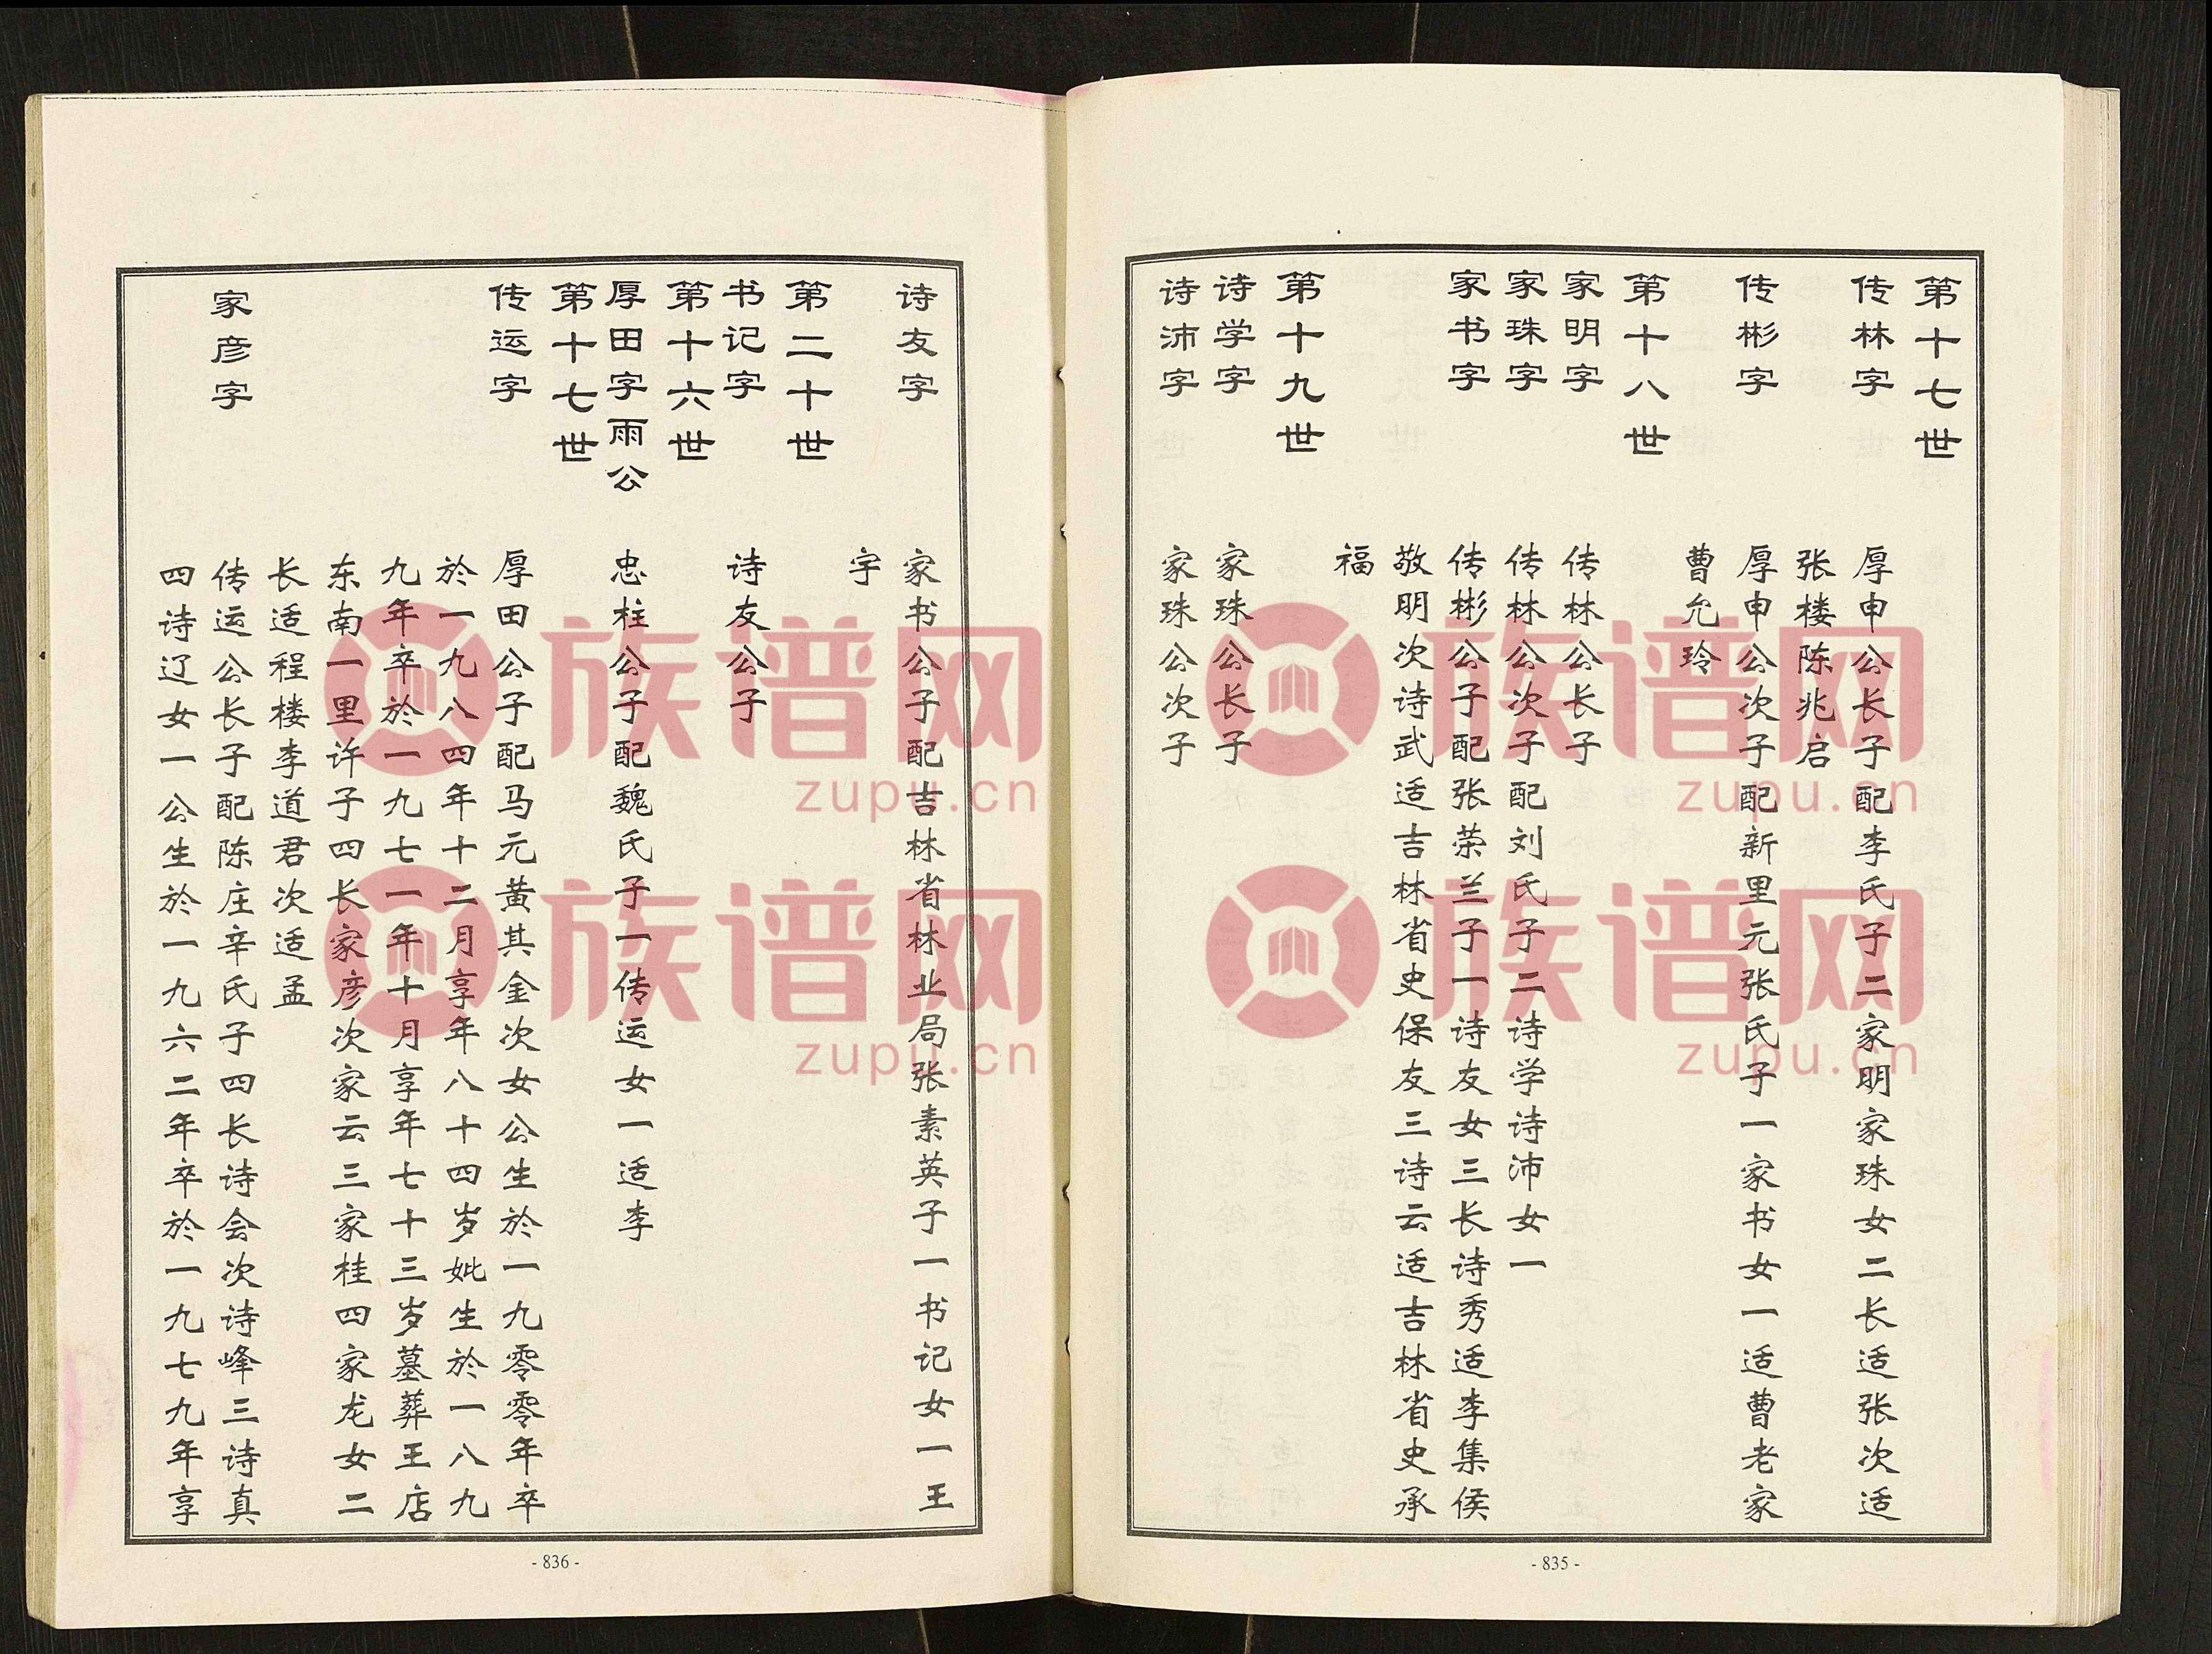 第十七世
传林字 厚申公长子配李氏子二家明家珠女二长适张次适
张楼陈兆启
传彬字 厚申公次子配新里元张氏子一家书女一适曹老家
曹允玲
第十八世
家明字 传林公长子
家珠字 传林公次子配刘氏子二诗学诗沛女一
家书字 传彬公子配张荣兰子一诗友女三长诗秀适李集侯
敬明次诗武适吉林省史保友三诗云适吉林省史承
福
第十九世
诗学字 家珠公长子
诗沛字 家珠公次子
- 835 -
诗友字 家书公子配吉林省林业局张素英子一书记女一王
宇
第二十世
书记字 诗友公子
第十六世
厚田字雨公 忠柱公子配魏氏子一传运女一适李
第十七世
传运字 厚田公子配马元黄其金次女公生於一九零零年卒
於一九八四年十二月享年八十四岁妣生於一八九
九年卒於一九七一年十月享年七十三岁墓葬王店
东南一里许子四长家彦次家云三家桂四家龙女二
长适程楼李道君次适孟
家彦字 传运公长子配陈庄辛氏子四长诗会次诗峰三诗真
四诗辽女一公生於一九六二年卒於一九七九年享
- 836 -
族谱网
zupu.cn
族谱网
zupu.cn
族谱网
zupu.cn
族谱网
zupu.cn